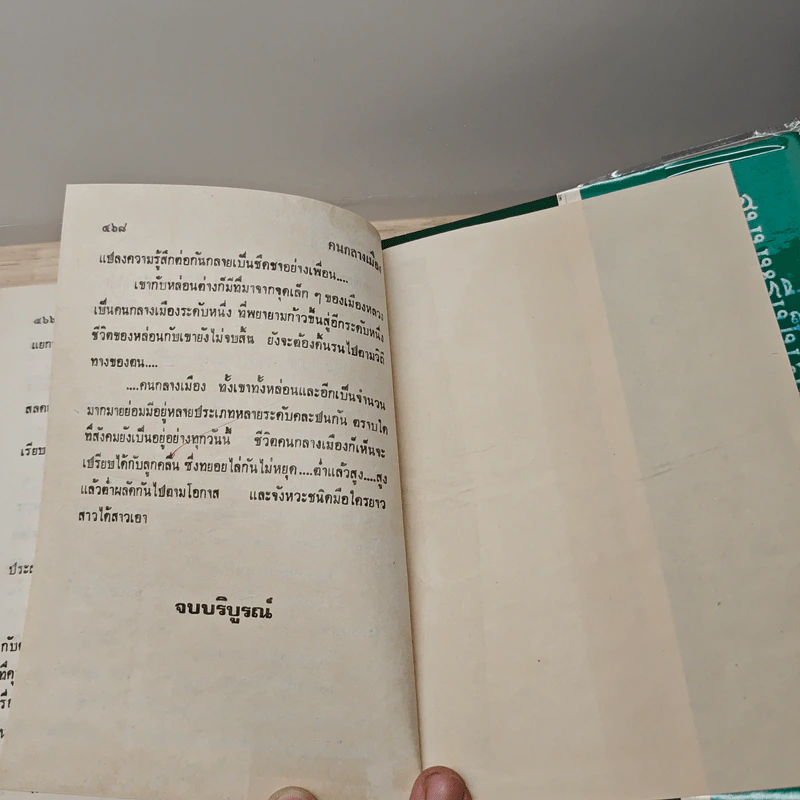 ๔๖๘
คนกลางเมือง
แปลงความรู้สึกต่อกันกลายเป็นชืดชาอย่างเพื่อน....
เขากับหล่อนต่างก็มีที่มาจากจุดเล็ก ๆ ของเมืองหลวง
เป็นคนกลางเมืองระดับหนึ่ง ที่พยายามก้าวขึ้นสู่อีกระดับหนึ่ง
ชีวิตของหล่อนกับเขายังไม่จบสิ้น ยังจะต้องดิ้นรนไปตามวิถี
ทางของตน....
....คนกลางเมือง ทั้งเขาทั้งหล่อนและอีกเป็นจำนวน
มากมายย่อมมีอยู่หลายประเภทหลายระดับคละปนกัน ตราบใด
ที่สังคมยังเป็นอยู่อย่างทุกวันนี้ ชีวิตคนกลางเมืองก็เห็นจะ
เปรียบได้กับลูกคลื่น ซึ่งทยอยไล่กันไม่หยุด....ต่ำแล้วสูง....สูง
แล้วต่ำผลัดกันไปตามโอกาส และจังหวะชนิดมือใครยาว
สาวได้สาวเอา
จบบริบูรณ์
๔๖๖